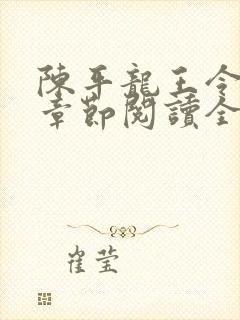 陳平龍王令
章節閱讀全
崔莹